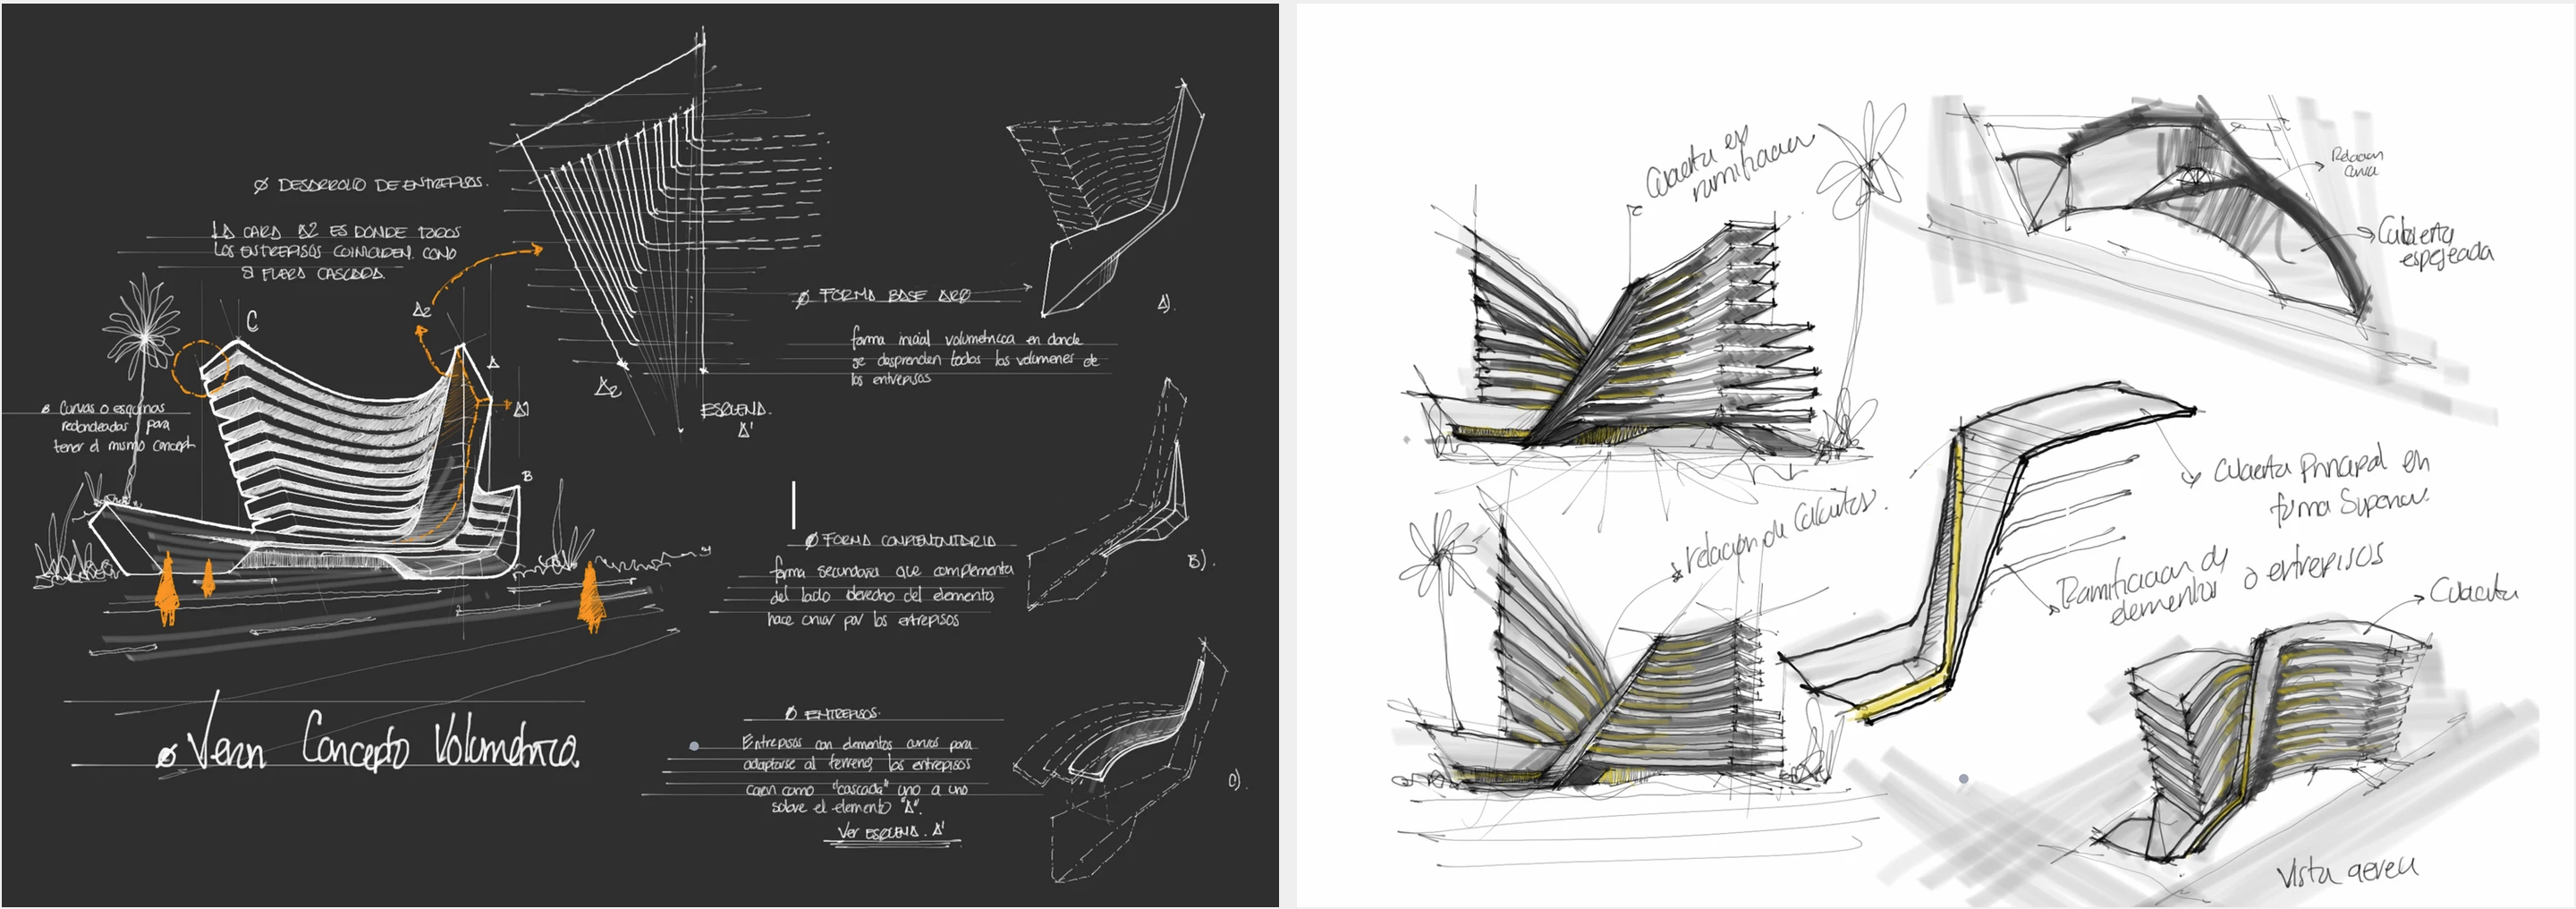 Ø DESARROLLO DE ENTREPISOS.
LA CARA A2 ES DONDE TODOS
LOS ENTREPISOS COINCIDEN. COMO
SI FUERA CASCADA.
C
A2
A
A1
B
Curvas o esquinas
redondeadas para
tener el mismo concept
A2
ESQUEMA.
A'
Ø FORMA BASE
A).
forma inicial volumetrica en donde
se desprenden todos los volumenes de
los entrepisos
Ø FORMA COMPLEMENTARIA
B).
forma secundaria que complementa
del lado derecho del elemento,
hace por los entrepisos
Ø ENTREPISOS.
Entrepisos con elementos curvos para
adaptarse al terreno, los entrepisos
caen como "cascada" uno a uno
sobre el elemento "A".
Ver ESQUEMA. A'
C).
Ø Concepto Volumetrico.
Cubierta en
ramificacion
Relacion
curva
Cubierta
espejeada
Cubierta Principal en
forma Superior.
relacion de
Ramificacion de
elementos o entrepisos
Cubierta
Vista aerea